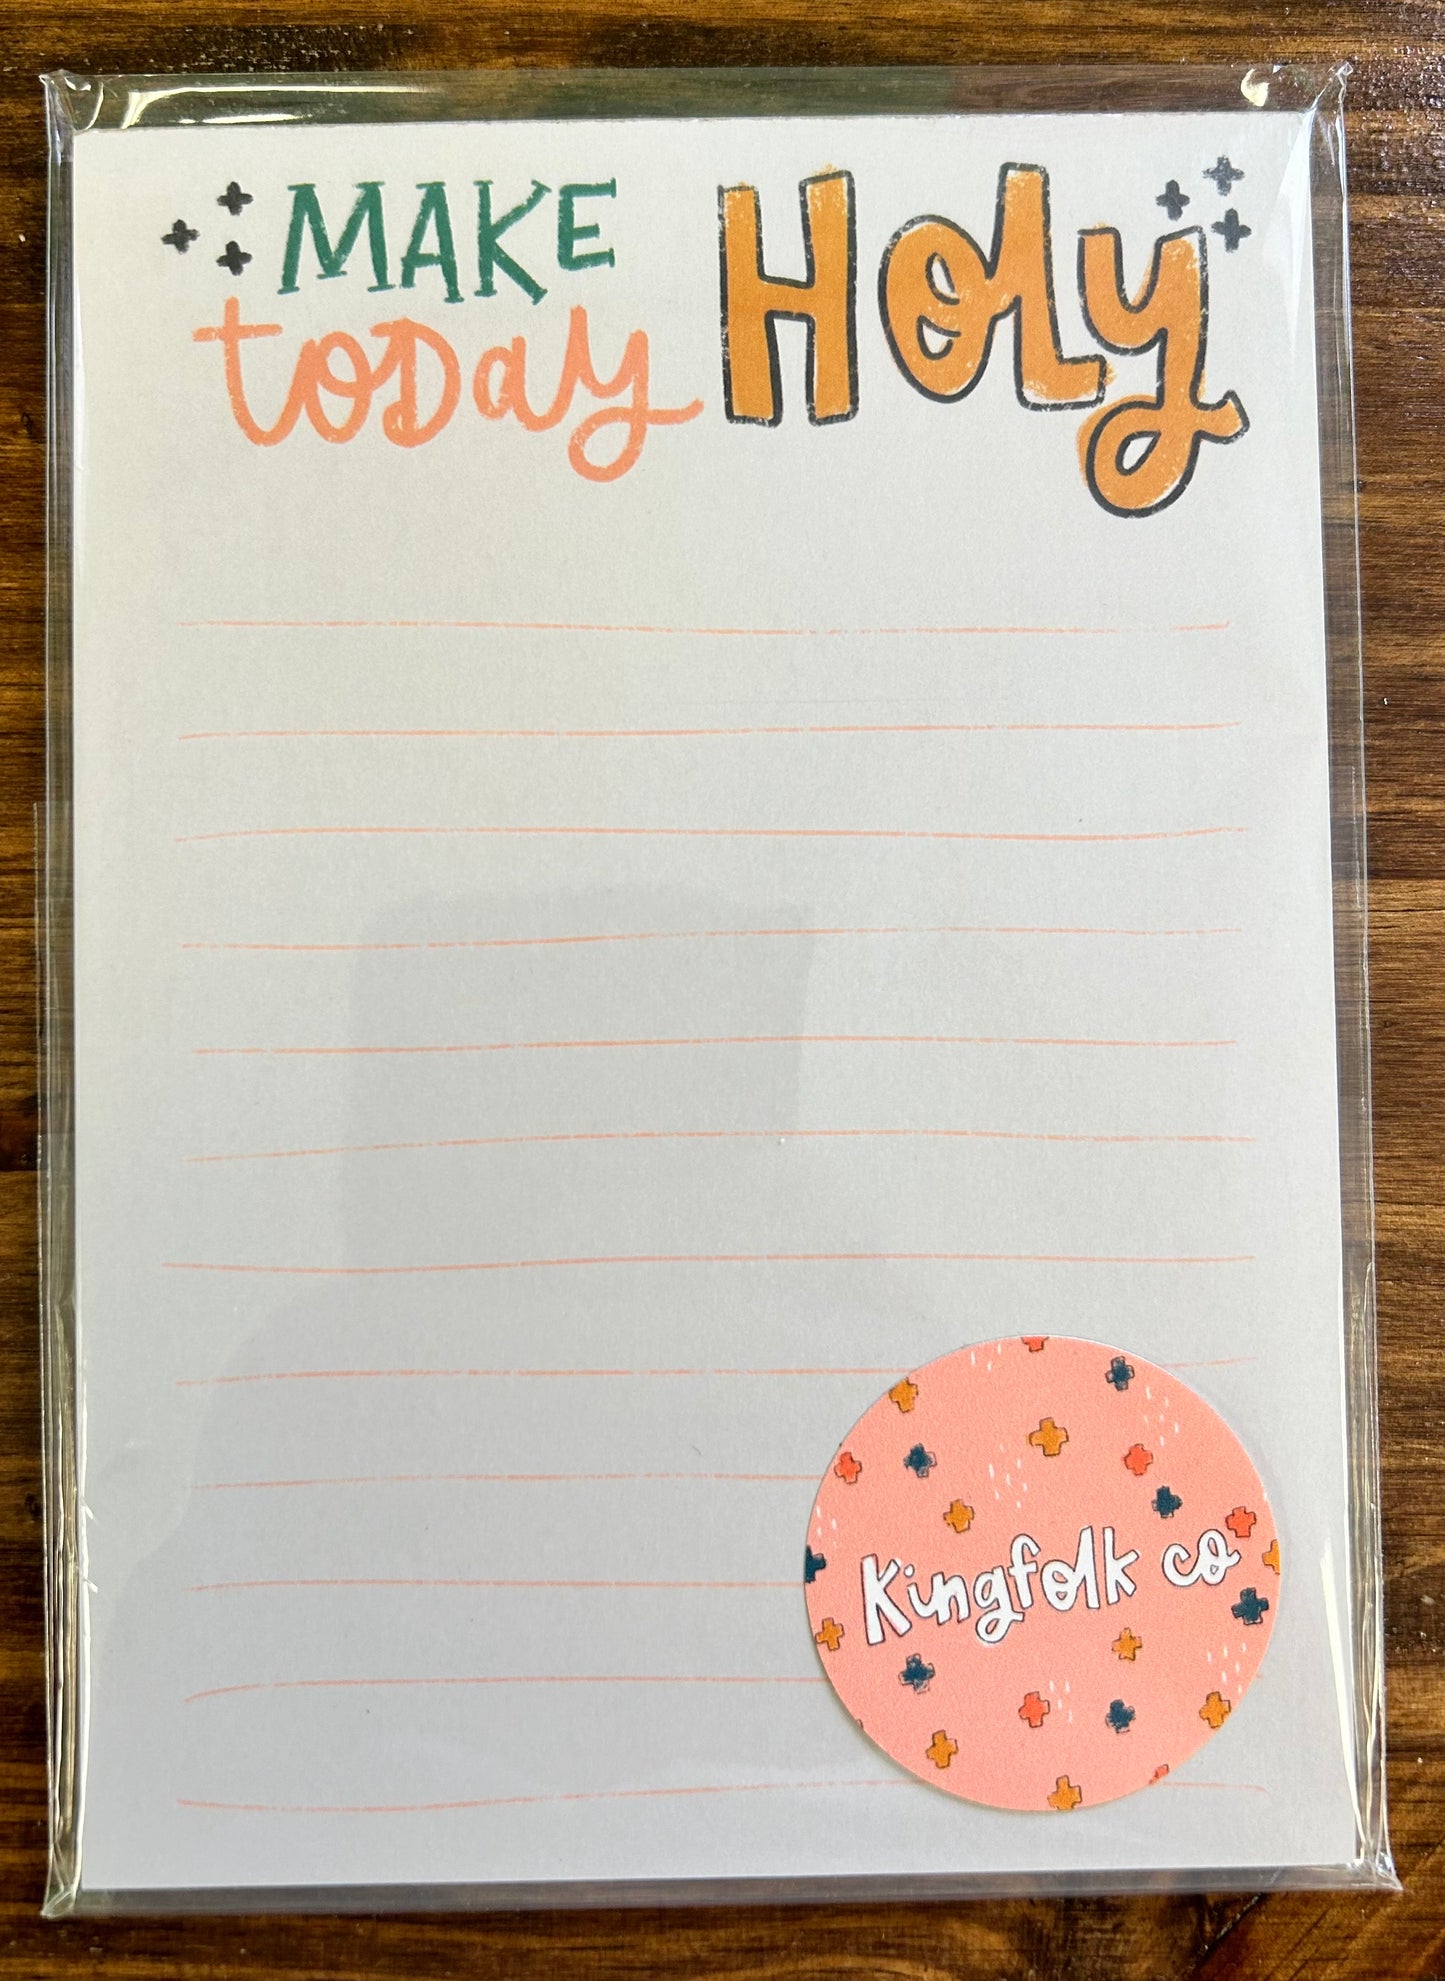 MAKE
today
Holy
Kingfolk co